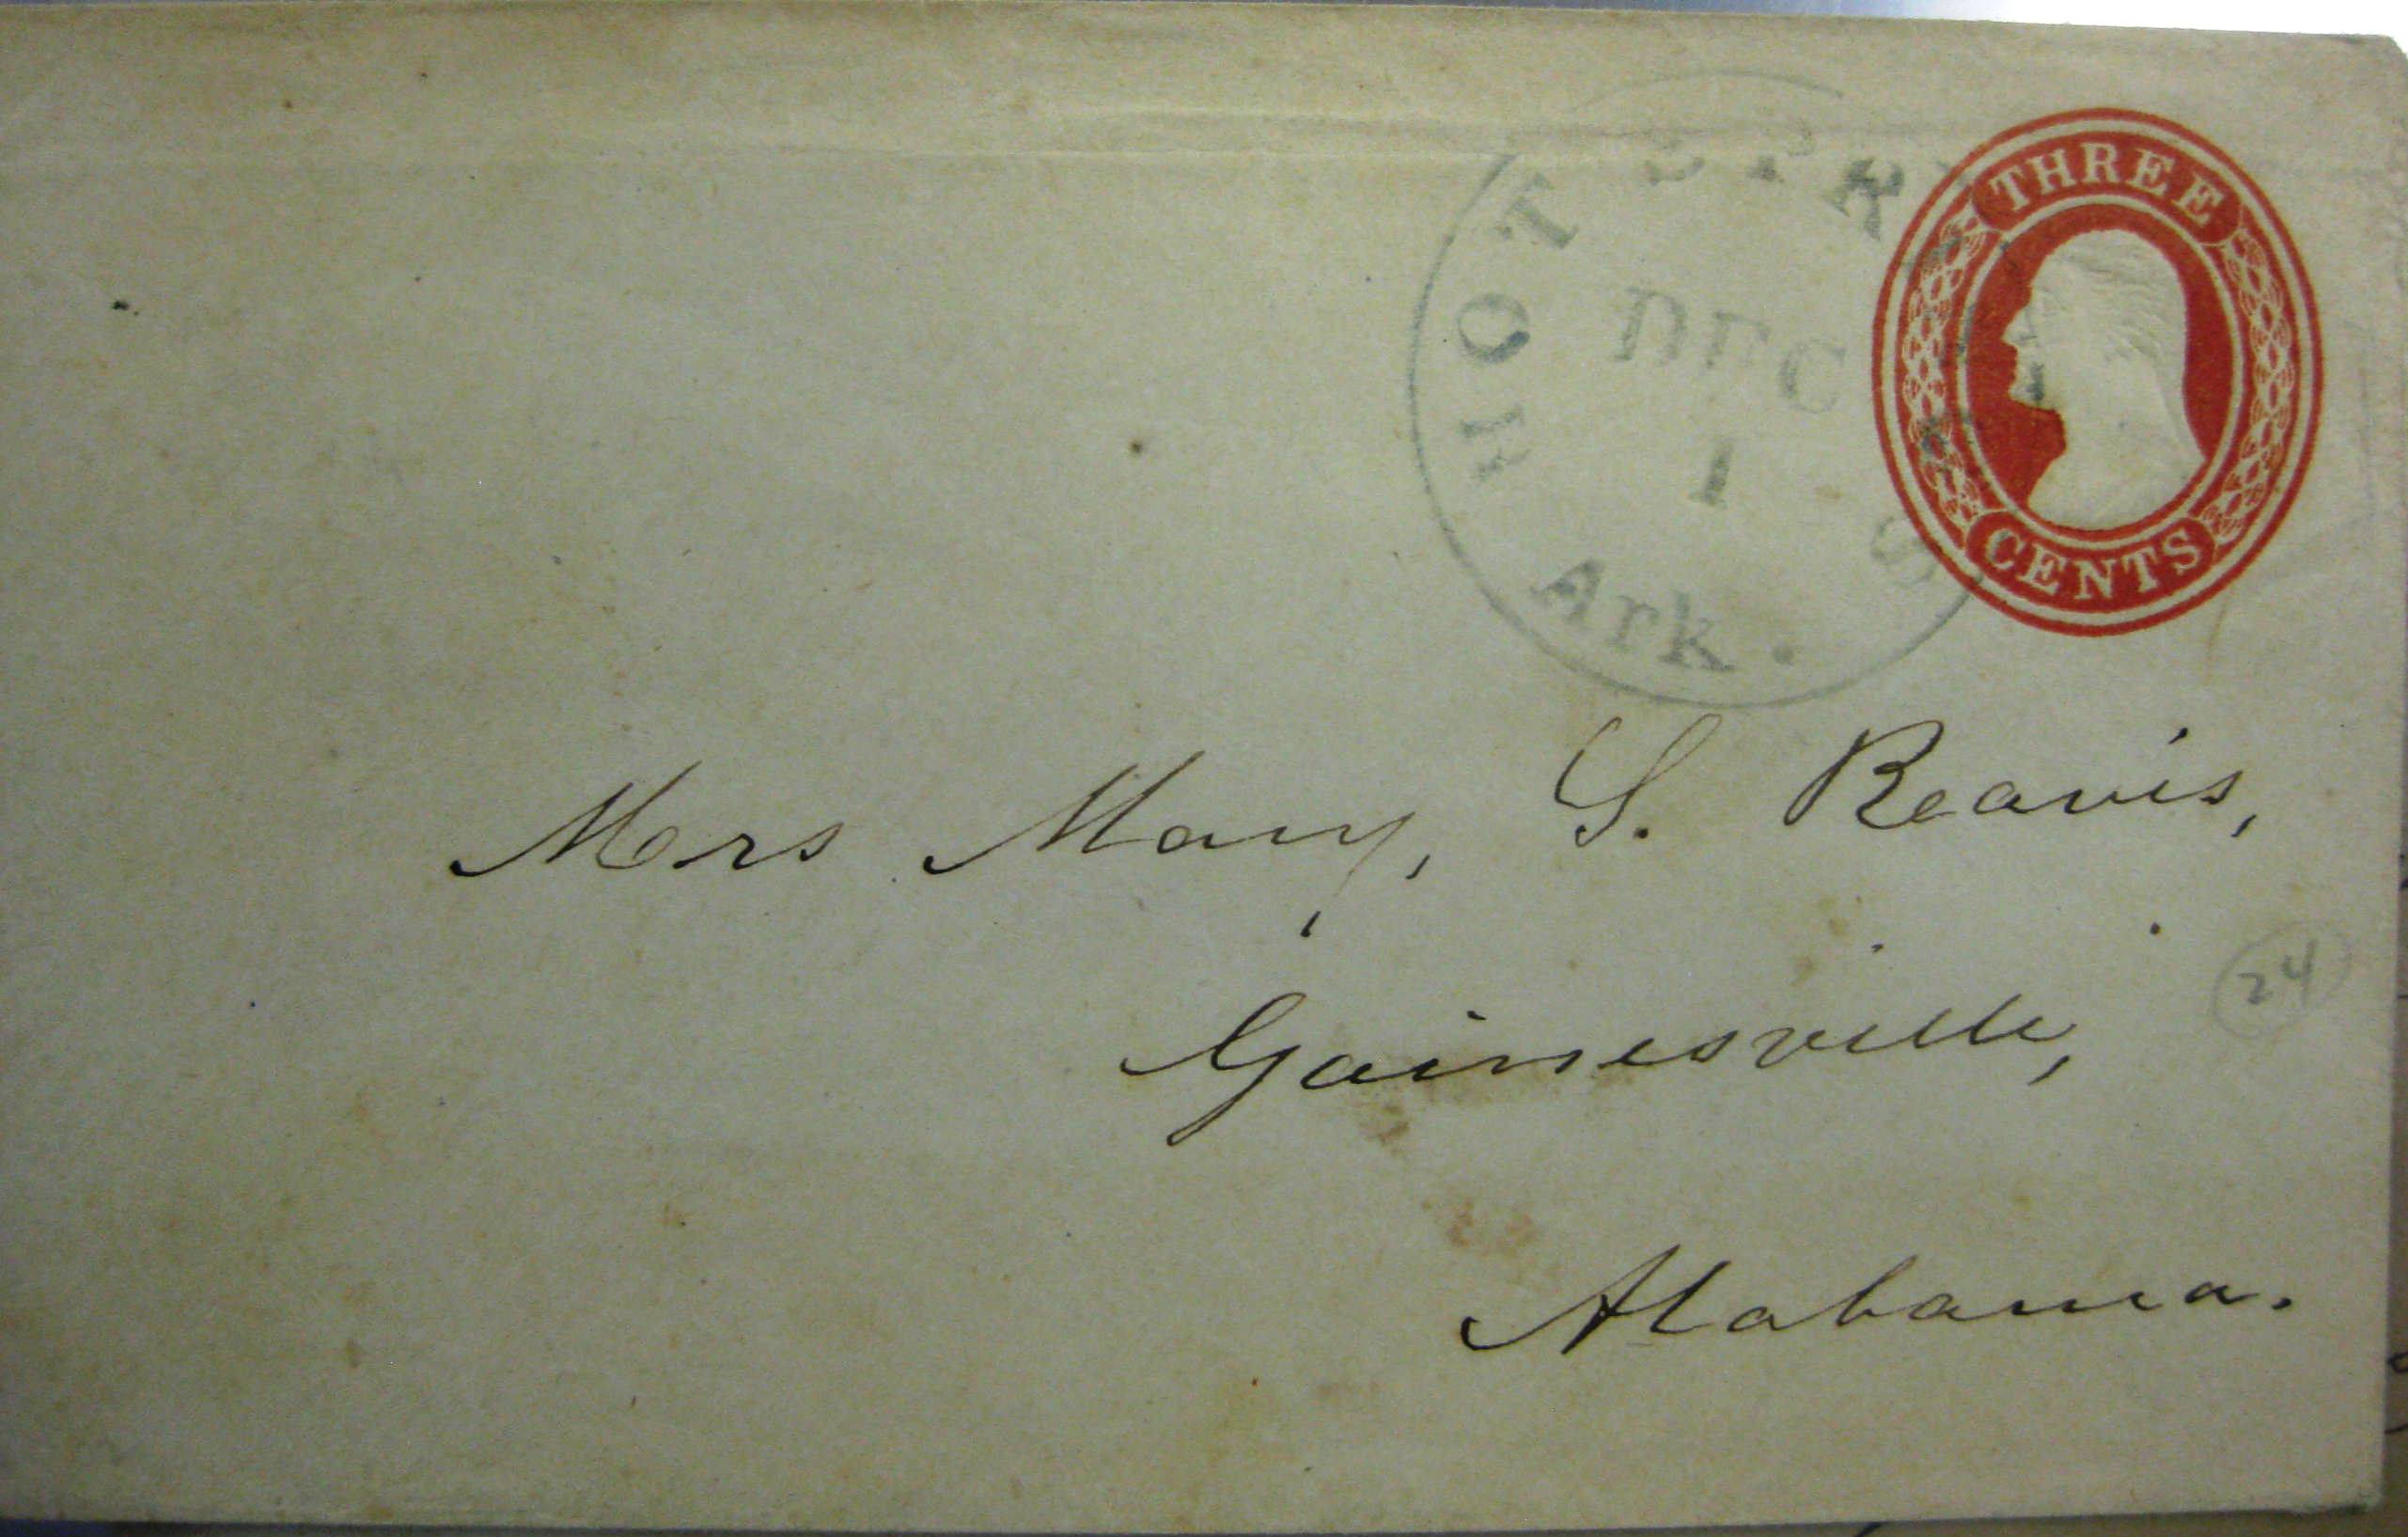 HOT SPRINGS
DEC
1
Ark.
THREE
CENTS
Mrs Mary, S. Reavis,
Gainesville,
Alabama.
24